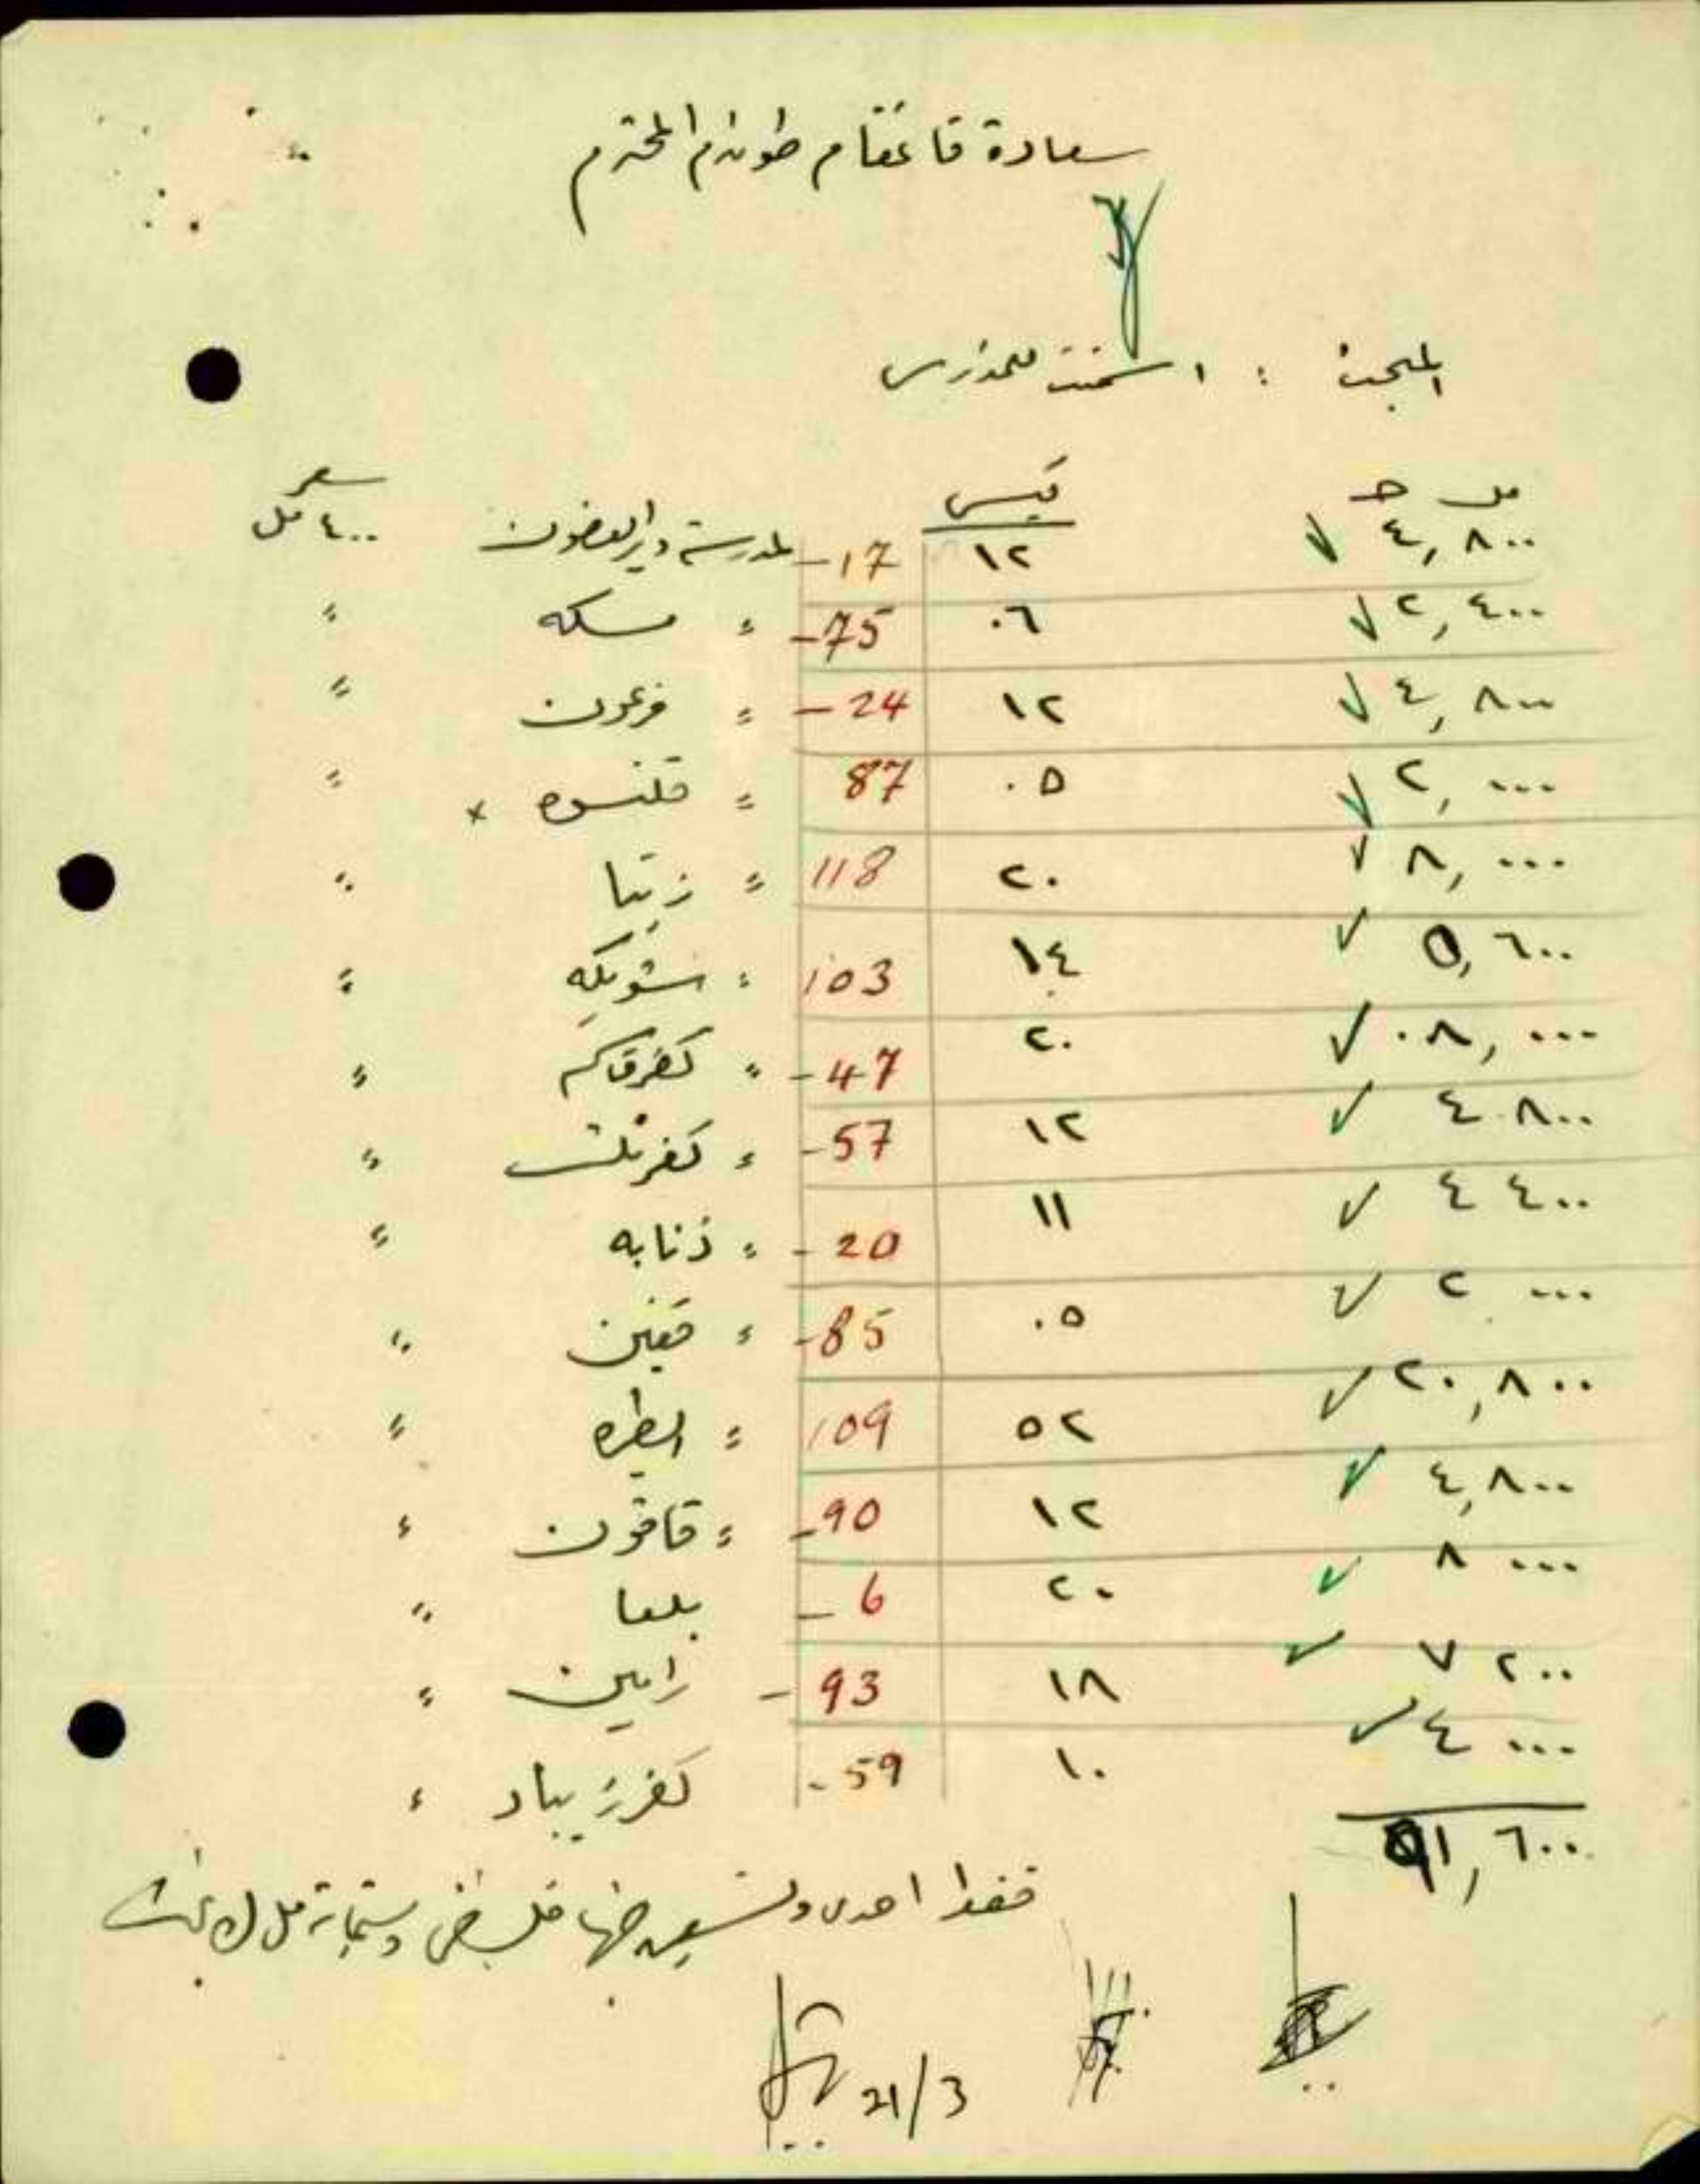 سعادة قائمقام طولكرم المحترم
المبحث : اسمنت للمدارس
مل جـ كيس سعر
٤,٨٠٠ ١٢ 17- لمدرسة دير الغصون ٤٠٠ مل
٢,٤٠٠ ٠٦ 75- " مسكه "
٤,٨٠٠ ١٢ 24- " فرعون "
٢,٠٠٠ ٠٥ 87 " قلنسوه x "
٨,٠٠٠ ٢٠ 118 " زيتا "
٥,٦٠٠ ١٤ 103 " شويكه "
٠٨,٠٠٠ ٢٠ 47- " كفرقاسم "
٤ ٨٠٠ ١٢ 57- " كفرثلث "
٤ ٤٠٠ ١١ 20- " ذنابه "
٢ ٠٠٠ ٠٥ 85- " قفين "
٢٠,٨٠٠ ٥٢ 109 " الطيره "
٤,٨٠٠ ١٢ 90- " قاقون "
٨ ٠٠٠ ٢٠ 6- بلعا "
٧ ٢٠٠ ١٨ 93- رامين "
٤ ٠٠٠ ١٠ 59- كفرزيباد "
٩١,٦٠٠
فقط احدى وتسعين جنيها فلسطيني وستماية مل لا غير
21/3